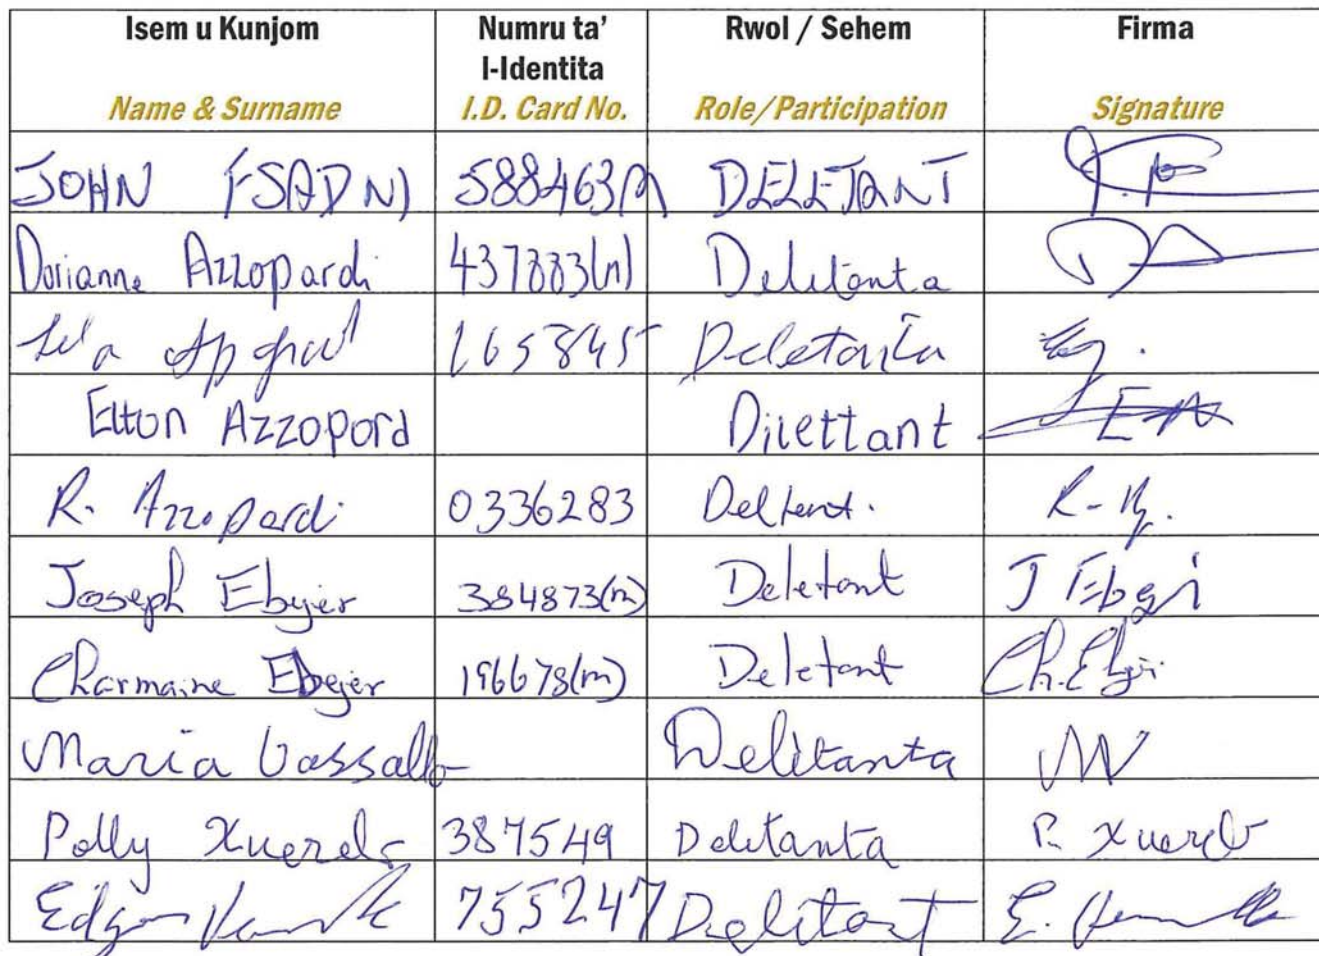 Isem u Kunjom Numru ta' Rwol / Sehem Firma
l-Identita
Name & Surname I.D. Card No. Role/Participation Signature
JOHN FSADNI 588463M DELETANT
Dorianne Azzopardi 437883(m) Deletanta
165845 Deletanta
Elton Azzopord Dilettant EA
R. Azzopardi 0336283 Deltent.
Joseph Ebejer 384873(m) Deletont J Ebejer
Charmaine Ebejer 196678(m) Deletont Ch. Ebejer
Maria Vassallo Delitanta MV
Polly Xuereb 387549 Delitanta P. Xuereb
755247 Delitant